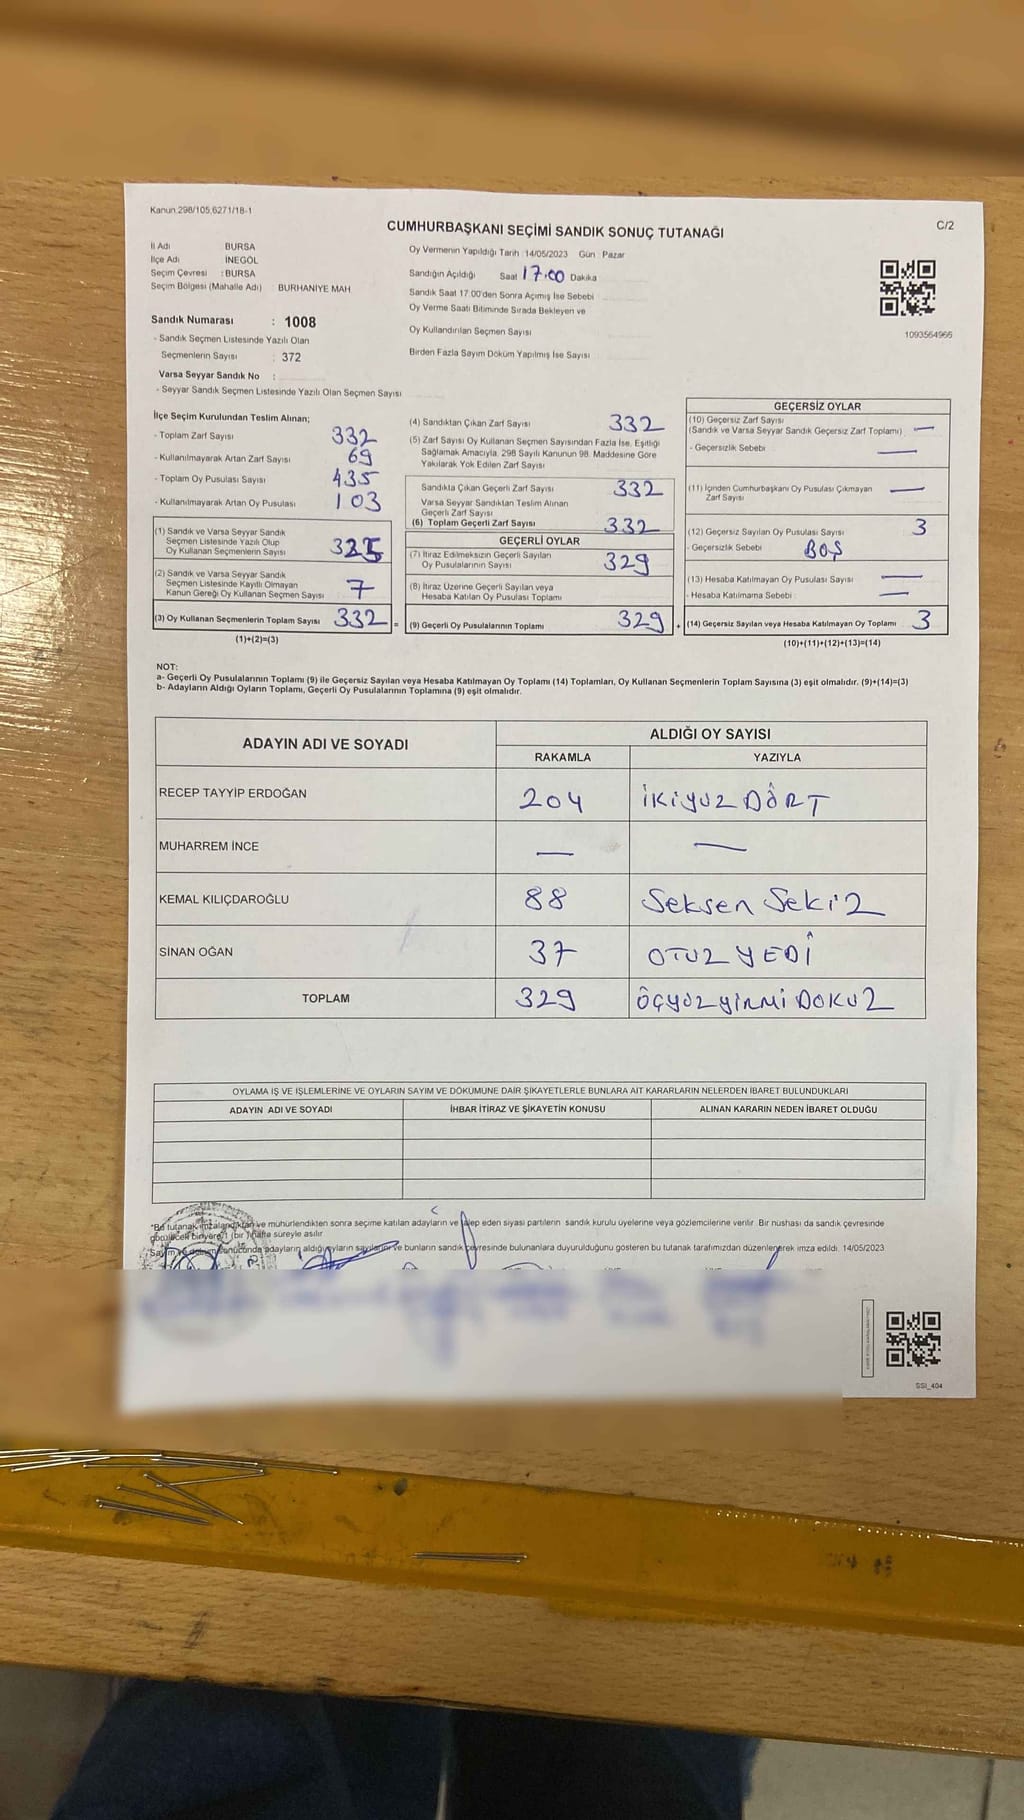 Kanun 298/105,6271/18-1
C/2
CUMHURBAŞKANI SEÇİMİ SANDIK SONUÇ TUTANAĞI
İl Adı BURSA
İlçe Adı İNEGÖL
Seçim Çevresi : BURSA
Seçim Bölgesi (Mahalle Adı) : BURHANIYE MAH
Sandık Numarası : 1008
- Sandık Seçmen Listesinde Yazılı Olan
Seçmenlerin Sayısı : 372
Varsa Seyyar Sandık No :
- Seyyar Sandık Seçmen Listesinde Yazılı Olan Seçmen Sayısı
Oy Vermenin Yapıldığı Tarih :14/05/2023 Gün : Pazar
Sandığın Açıldığı Saat 17:00 Dakika
Sandık Saat 17:00'den Sonra Açılmış İse Sebebi
Oy Verme Saati Bitiminde Sırada Bekleyen ve
Oy Kullandırılan Seçmen Sayısı
Birden Fazla Sayım Döküm Yapılmış İse Sayısı
1093564966
İlçe Seçim Kurulundan Teslim Alınan;
- Toplam Zarf Sayısı 332
- Kullanılmayarak Artan Zarf Sayısı 69
- Toplam Oy Pusulası Sayısı 435
- Kullanılmayarak Artan Oy Pusulası 103
(1) Sandık ve Varsa Seyyar Sandık
Seçmen Listesinde Yazılı Olup
Oy Kullanan Seçmenlerin Sayısı 325
(2) Sandık ve Varsa Seyyar Sandık
Seçmen Listesinde Kayıtlı Olmayan
Kanun Gereği Oy Kullanan Seçmen Sayısı 7
(3) Oy Kullanan Seçmenlerin Toplam Sayısı 332 =
(1)+(2)=(3)
(4) Sandıktan Çıkan Zarf Sayısı 332
(5) Zarf Sayısı Oy Kullanan Seçmen Sayısından Fazla İse, Eşitliği
Sağlamak Amacıyla, 298 Sayılı Kanunun 98. Maddesine Göre
Yakılarak Yok Edilen Zarf Sayısı
Sandıkta Çıkan Geçerli Zarf Sayısı 332
Varsa Seyyar Sandıktan Teslim Alınan
Geçerli Zarf Sayısı
(6) Toplam Geçerli Zarf Sayısı 332
GEÇERLİ OYLAR
(7) İtiraz Edilmeksizin Geçerli Sayılan
Oy Pusulalarının Sayısı 329
(8) İtiraz Üzerine Geçerli Sayılan veya
Hesaba Katılan Oy Pusulası Toplamı
(9) Geçerli Oy Pusulalarının Toplamı 329 +
GEÇERSİZ OYLAR
(10) Geçersiz Zarf Sayısı
(Sandık ve Varsa Seyyar Sandık Geçersiz Zarf Toplamı) —
- Geçersizlik Sebebi —
(11) İçinden Cumhurbaşkanı Oy Pusulası Çıkmayan
Zarf Sayısı —
(12) Geçersiz Sayılan Oy Pusulası Sayısı 3
- Geçersizlik Sebebi BOŞ
(13) Hesaba Katılmayan Oy Pusulası Sayısı —
- Hesaba Katılmama Sebebi : —
(14) Geçersiz Sayılan veya Hesaba Katılmayan Oy Toplamı 3
(10)+(11)+(12)+(13)=(14)
NOT:
a- Geçerli Oy Pusulalarının Toplamı (9) ile Geçersiz Sayılan veya Hesaba Katılmayan Oy Toplamı (14) Toplamları, Oy Kullanan Seçmenlerin Toplam Sayısına (3) eşit olmalıdır. (9)+(14)=(3)
b- Adayların Aldığı Oyların Toplamı, Geçerli Oy Pusulalarının Toplamına (9) eşit olmalıdır.
ADAYIN ADI VE SOYADI ALDIĞI OY SAYISI
RAKAMLA YAZIYLA
RECEP TAYYİP ERDOĞAN 204 İKİYUZ DÖRT
MUHARREM İNCE — —
KEMAL KILIÇDAROĞLU 88 Seksen Sekiz
SİNAN OĞAN 37 OTUZ YEDİ
TOPLAM 329 ÜÇYÜZ YİRMİ DOKUZ
OYLAMA İŞ VE İŞLEMLERİNE VE OYLARIN SAYIM VE DÖKÜMÜNE DAİR ŞİKAYETLERLE BUNLARA AİT KARARLARIN NELERDEN İBARET BULUNDUKLARI
ADAYIN ADI VE SOYADI İHBAR İTİRAZ VE ŞİKAYETİN KONUSU ALINAN KARARIN NEDEN İBARET OLDUĞU
*Bu tutanak imzalandıktan ve mühürlendikten sonra seçime katılan adayların ve talep eden siyasi partilerin sandık kurulu üyelerine veya gözlemcilerine verilir. Bir nüshası da sandık çevresinde
görülecek bir yere 1 (bir) hafta süreyle asılır
*Sayım ve döküm sonucunda adayların aldığı oyların sayılarını ve bunların sandık çevresinde bulunanlara duyurulduğunu gösteren bu tutanak tarafımızdan düzenlenerek imza edildi. 14/05/2023
SSI_404